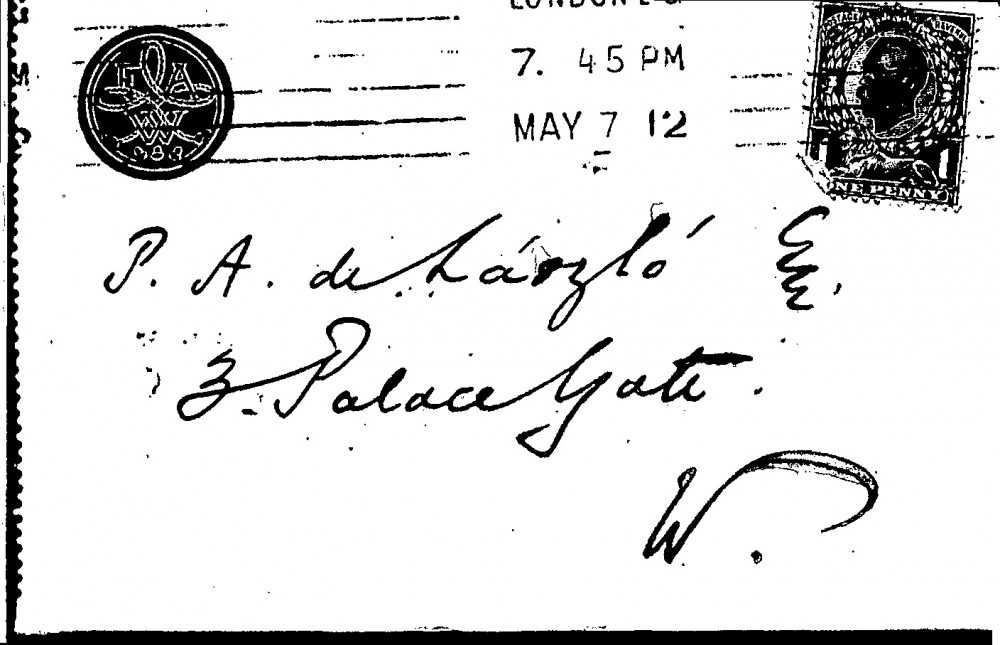 LONDON E.C
7. 45 PM
MAY 7 12
POSTAGE REVENUE
1 1
ONE PENNY
P. A. de László Esq.
3. Palace Gate.
W.